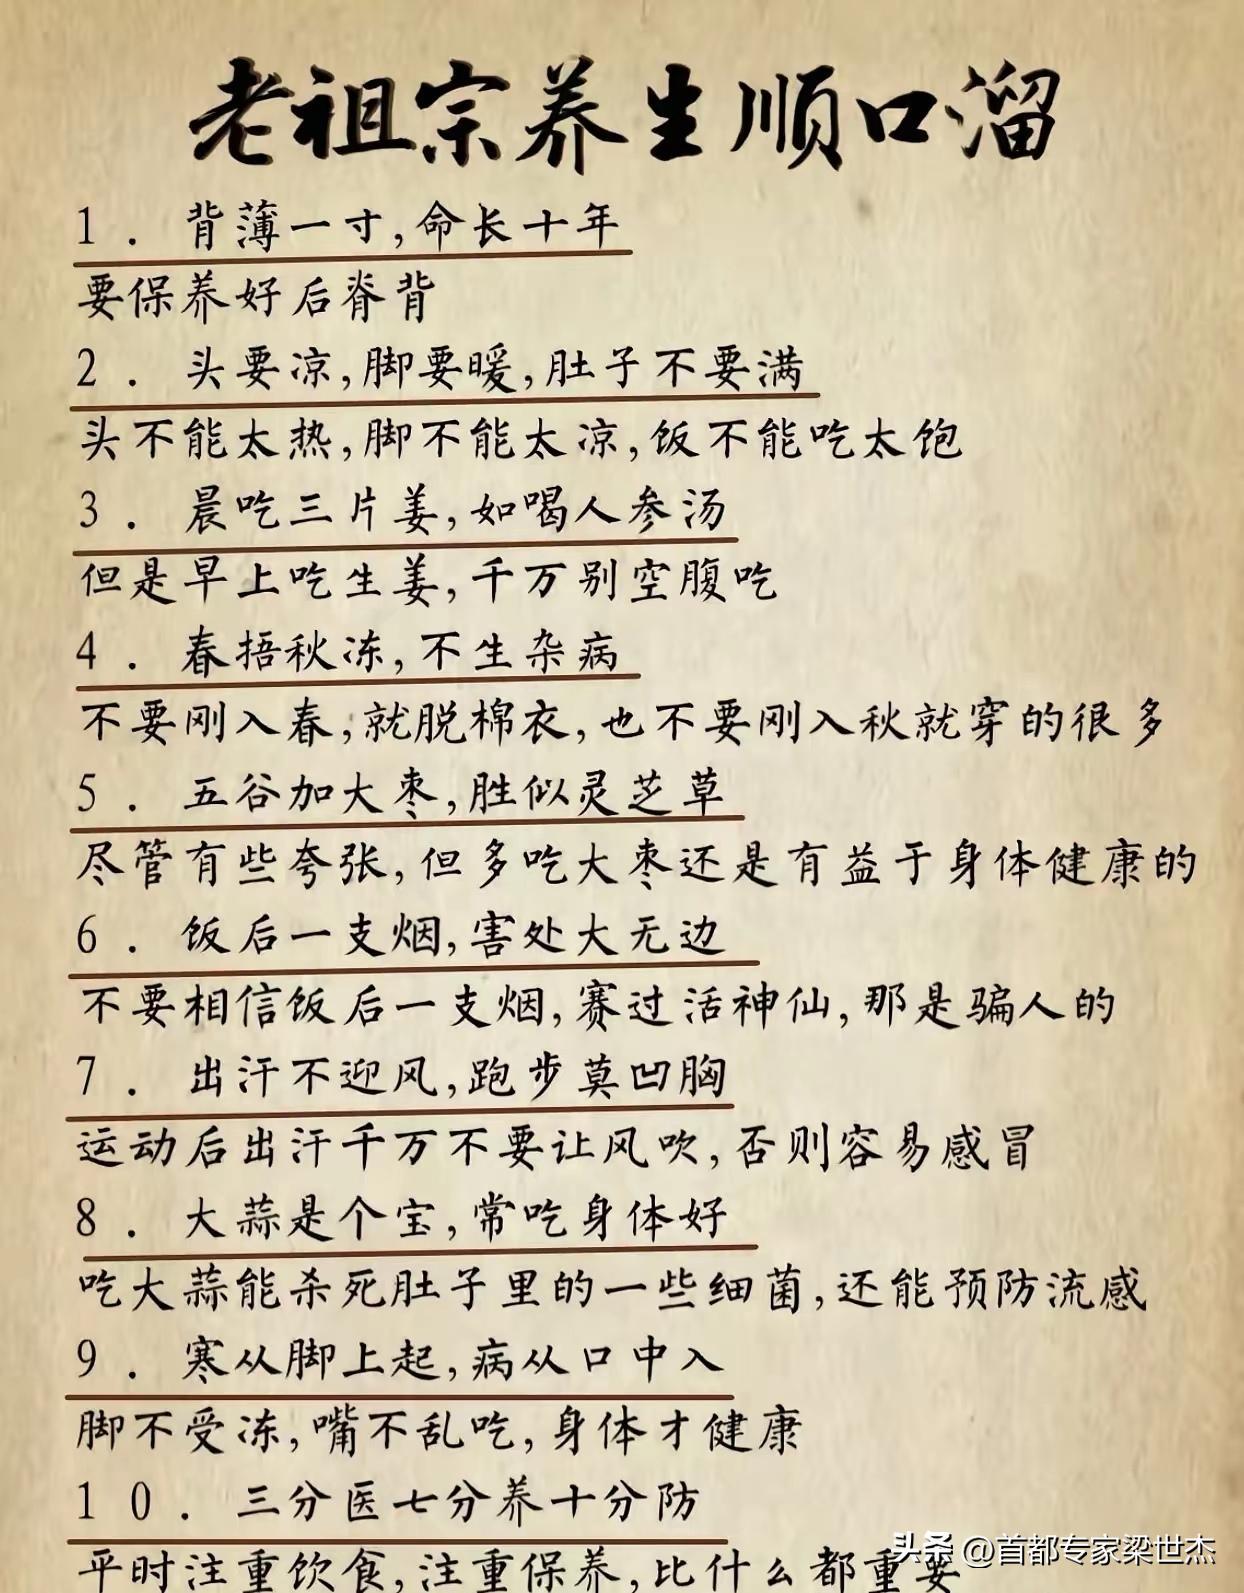 老祖宗养生顺口溜
1. 背薄一寸,命长十年
要保养好后脊背
2. 头要凉,脚要暖,肚子不要满
头不能太热,脚不能太凉,饭不能吃太饱
3. 晨吃三片姜,如喝人参汤
但是早上吃生姜,千万别空腹吃
4. 春捂秋冻,不生杂病
不要刚入春,就脱棉衣,也不要刚入秋就穿的很多
5. 五谷加大枣,胜似灵芝草
尽管有些夸张,但多吃大枣还是有益于身体健康的
6. 饭后一支烟,害处大无边
不要相信饭后一支烟,赛过活神仙,那是骗人的
7. 出汗不迎风,跑步莫凹胸
运动后出汗千万不要让风吹,否则容易感冒
8. 大蒜是个宝,常吃身体好
吃大蒜能杀死肚子里的一些细菌,还能预防流感
9. 寒从脚上起,病从口中入
脚不受冻,嘴不乱吃,身体才健康
10. 三分医七分养十分防
平时注重饮食,注重保养,比什么都重要
头条 @首都专家梁世杰